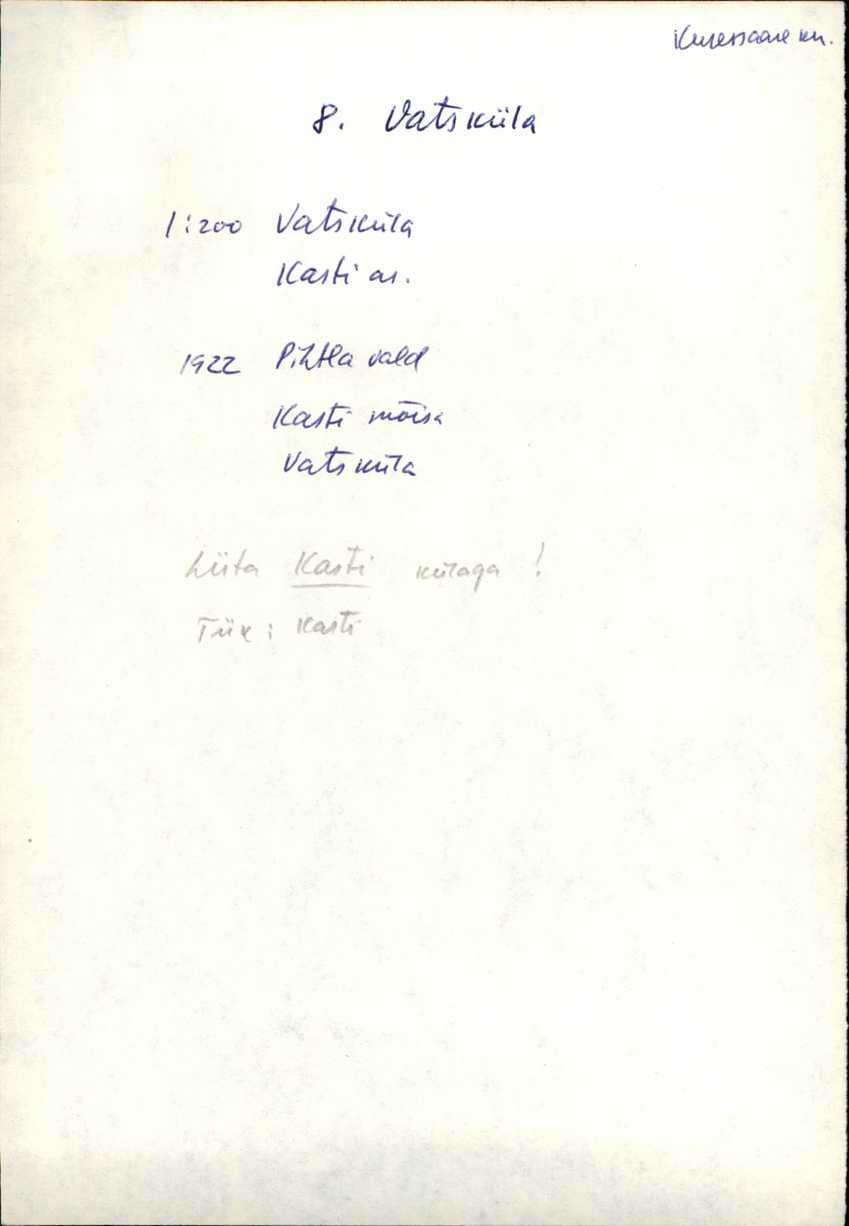 Kuressaare kn.
8. Vatsküla
1:200 Vatsküla
Kasti as.
1922 Pihtla vald
Kasti mõisa
Vatsküla
Liita Kasti külaga !
Kasti